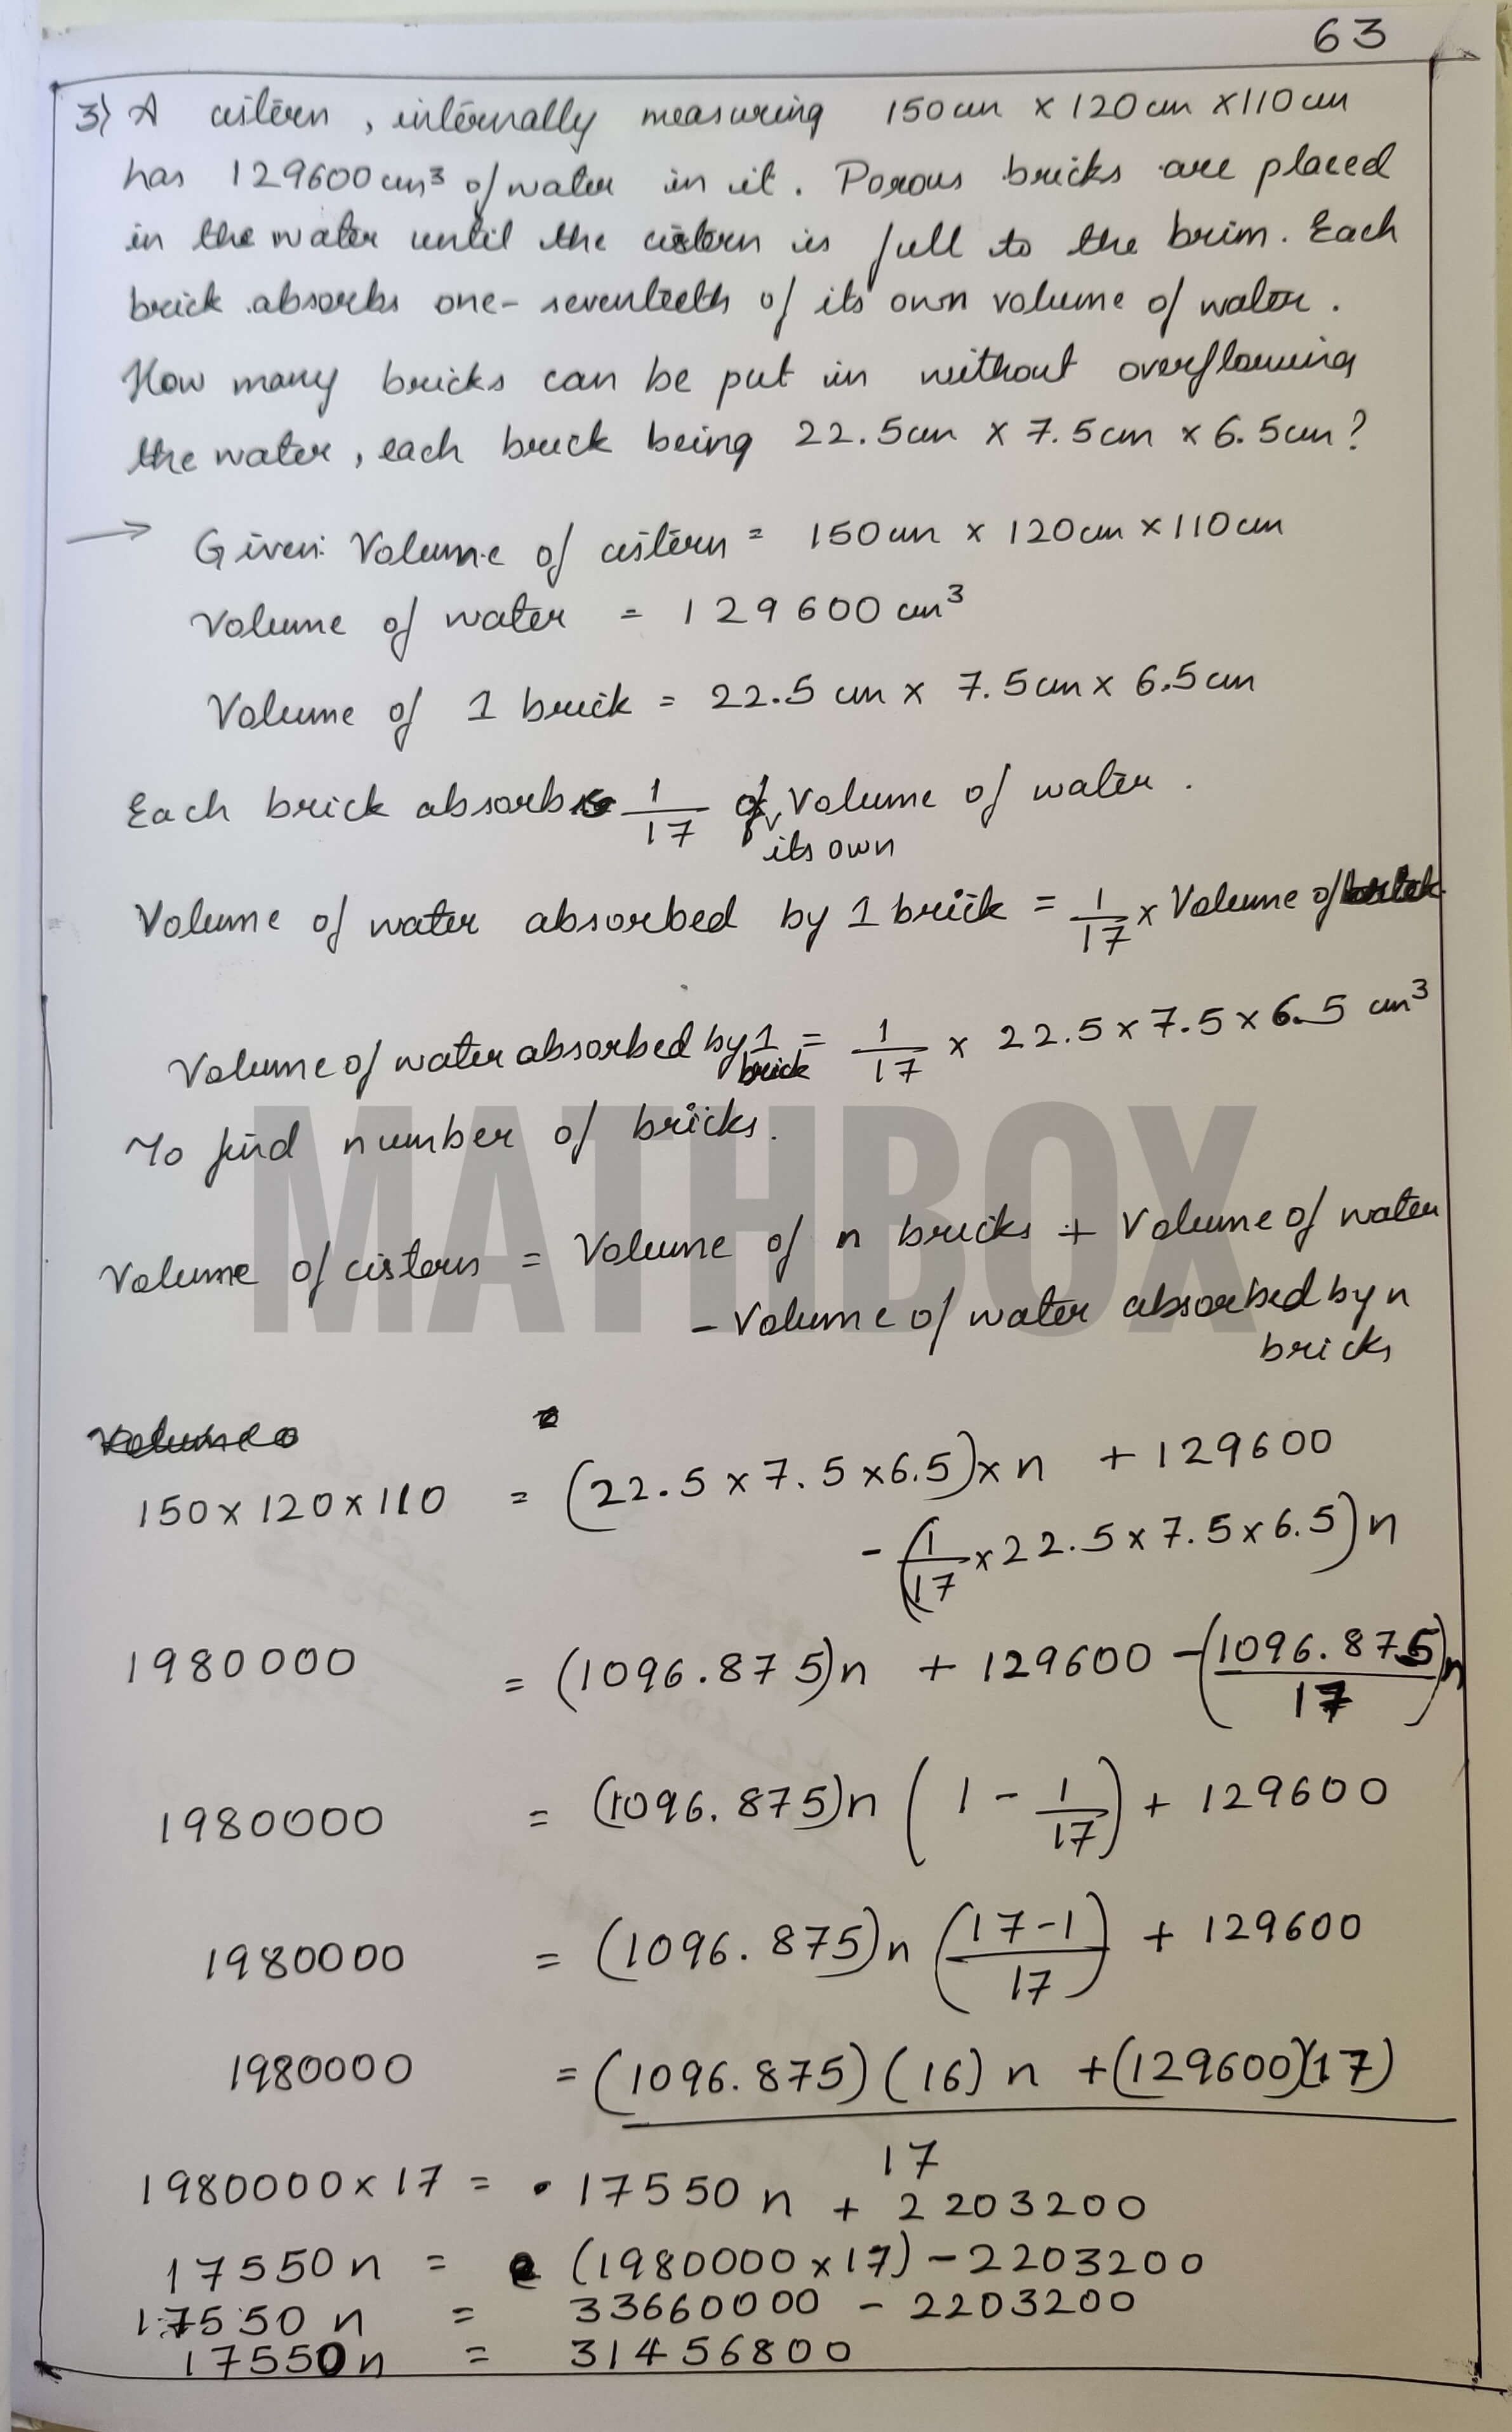 63
3) A cistern, internally measuring 150cm x 120cm x 110cm
has 129600cm³ of water in it. Porous bricks are placed
in the water until the cistern is full to the brim. Each
brick absorbs one-seventeeth of its own volume of water.
How many bricks can be put in without overflowing
the water, each brick being 22.5cm x 7.5cm x 6.5cm?
→ Given: Volume of cistern = 150cm x 120cm x 110cm
Volume of water = 129600 cm³
Volume of 1 brick = 22.5 cm x 7.5cm x 6.5cm
Each brick absorbs 1/17 of its own Volume of water.
Volume of water absorbed by 1 brick = 1/17 x Volume of brick
Volume of water absorbed by 1 brick = 1/17 x 22.5 x 7.5 x 6.5 cm³
To find number of bricks.
MATHBOX
Volume of cistern = Volume of n bricks + Volume of water
- Volume of water absorbed by n
bricks
150 x 120 x 110 = (22.5 x 7.5 x 6.5) x n + 129600
- (1/17 x 22.5 x 7.5 x 6.5) n
1980000 = (1096.875)n + 129600 - (1096.875/17)n
1980000 = (1096.875)n (1 - 1/17) + 129600
1980000 = (1096.875)n (17-1/17) + 129600
1980000 = (1096.875)(16) n + (129600)(17)
17
1980000 x 17 = 17550 n + 2203200
17550 n = (1980000 x 17) - 2203200
17550 n = 33660000 - 2203200
17550 n = 31456800